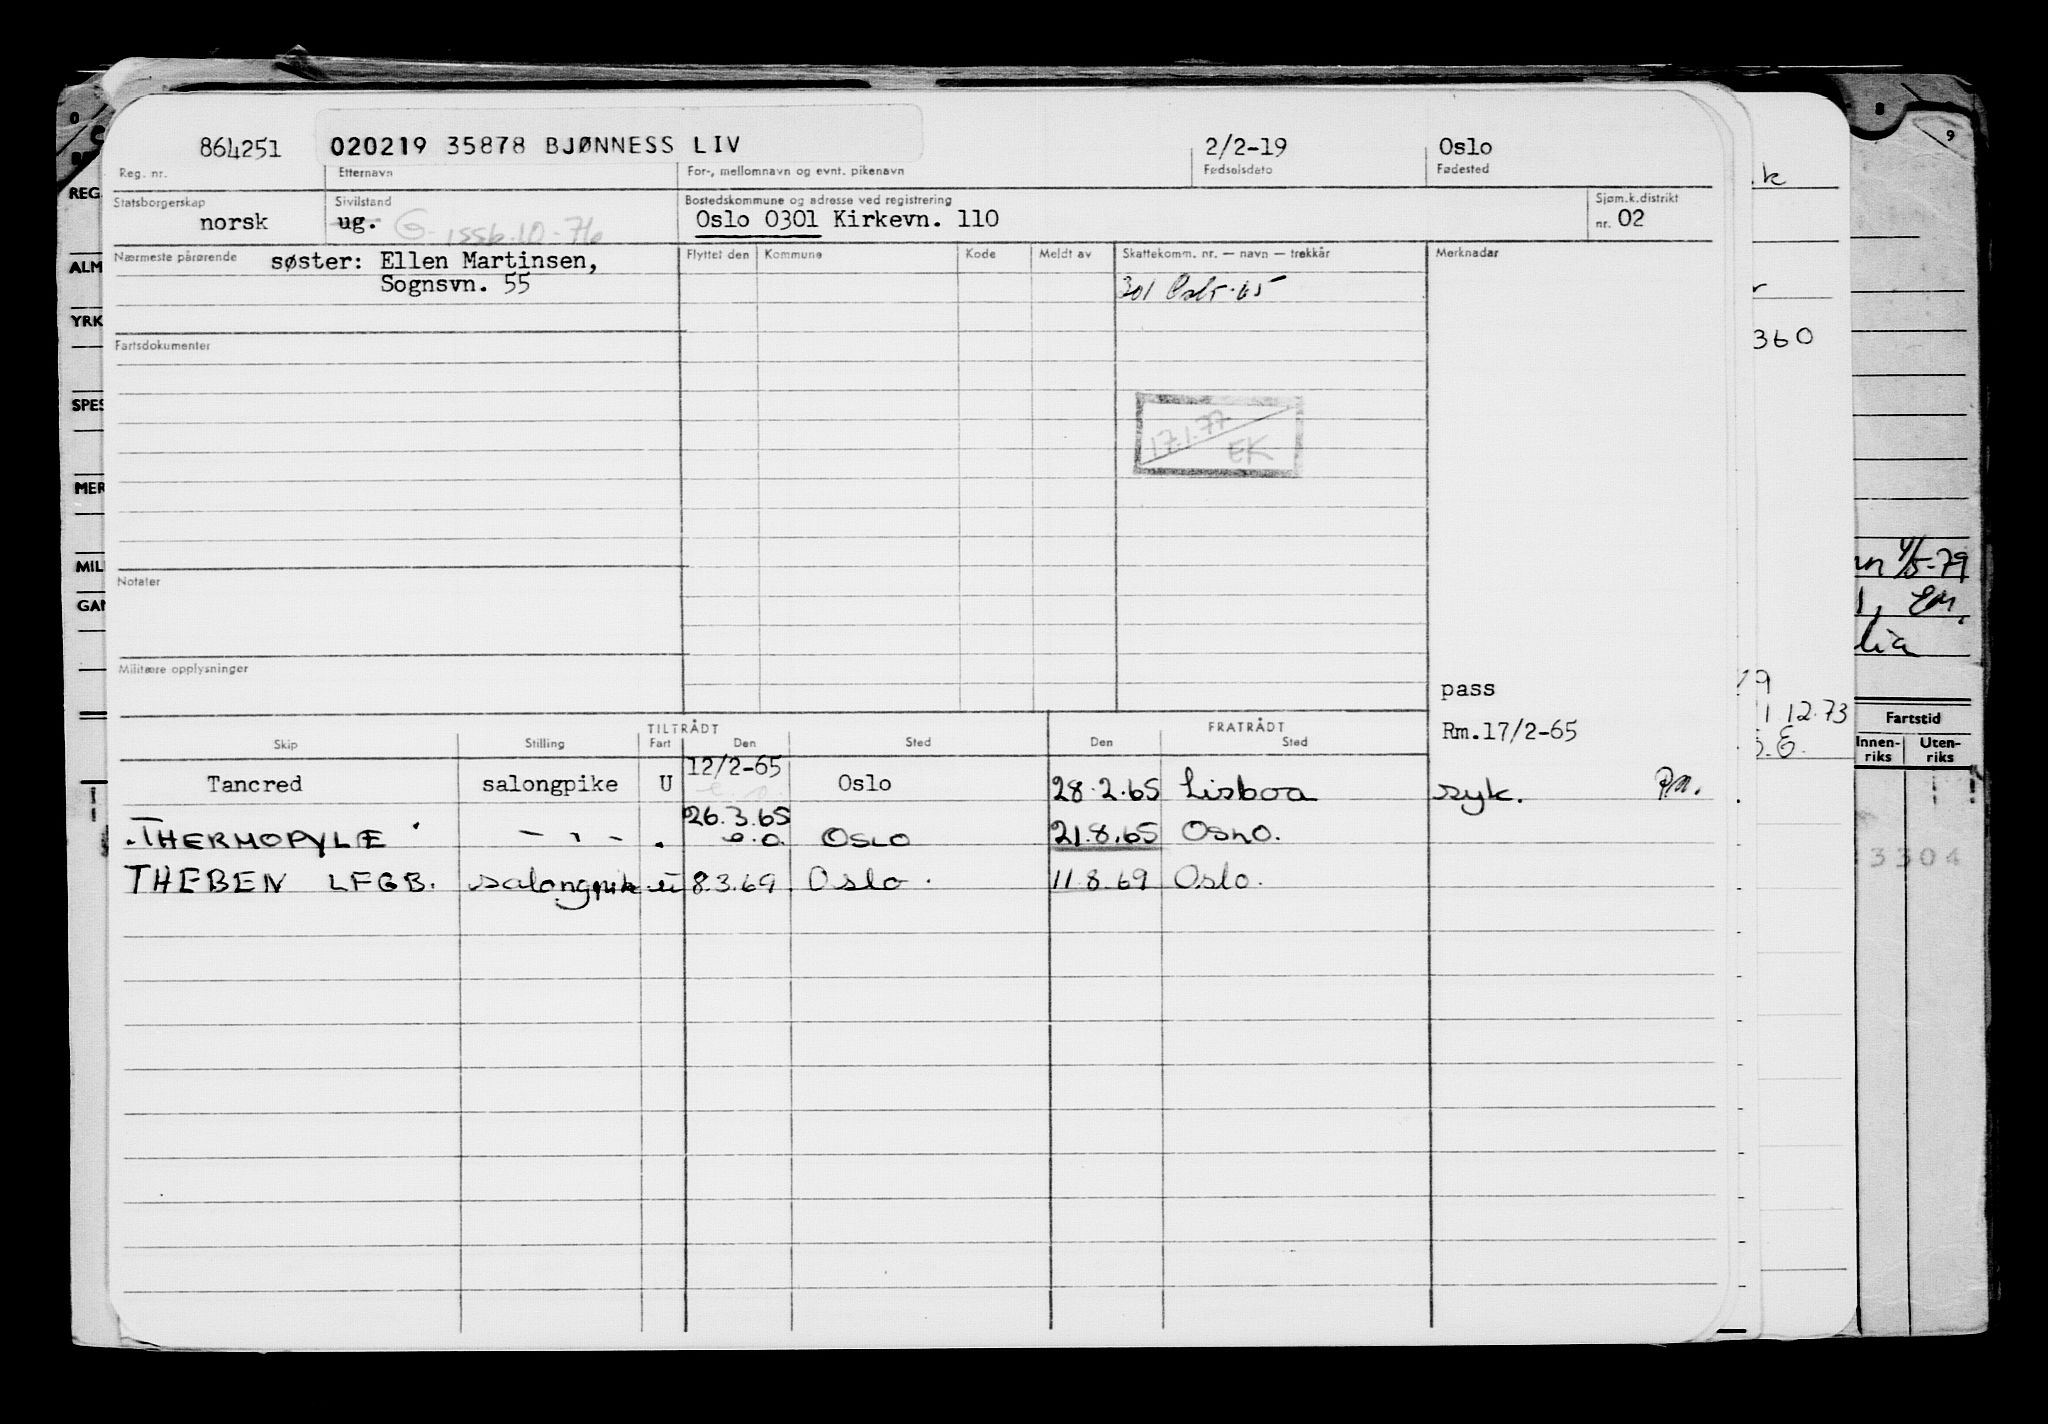 864251 020219 35878 BJØNNESS LIV 2/2-19 Oslo
Reg. nr. Etternavn For-, mellomnavn og evnt. pikenavn Fødselsdato Fødested
Statsborgerskap Sivilstand Bostedskommune og adresse ved registrering Sjøm.k.distrikt
norsk ug. G Oslo 0301 Kirkevn. 110 nr. 02
Nærmeste pårørende søster: Ellen Martinsen, Flyttet den Kommune Kode Meldt av Skattekomm. nr. — navn — trekkår Merknader
Sognsvn. 55 301 Oslo 65
Fartsdokumenter
17.1.77
EK
Notater
Militære opplysninger
pass
Rm.17/2-65
TILTRÅDT FRATRÅDT
Skip Stilling Fart Den Sted Den Sted
12/2-65
Tancred salongpike U Oslo 28.2.65 Lisboa syk.
26.3.65
THERMOPYLÆ — " — Oslo 21.8.65 Oslo.
THEBEN LFGB. salongpike u 8.3.69 Oslo. 11.8.69 Oslo.
0
8
9
REG.
ALM
YRK
SPES
MER
MIL
GAN
360
4/5-79
12.73
Fartstid
Innen-riks Uten-riks
3304